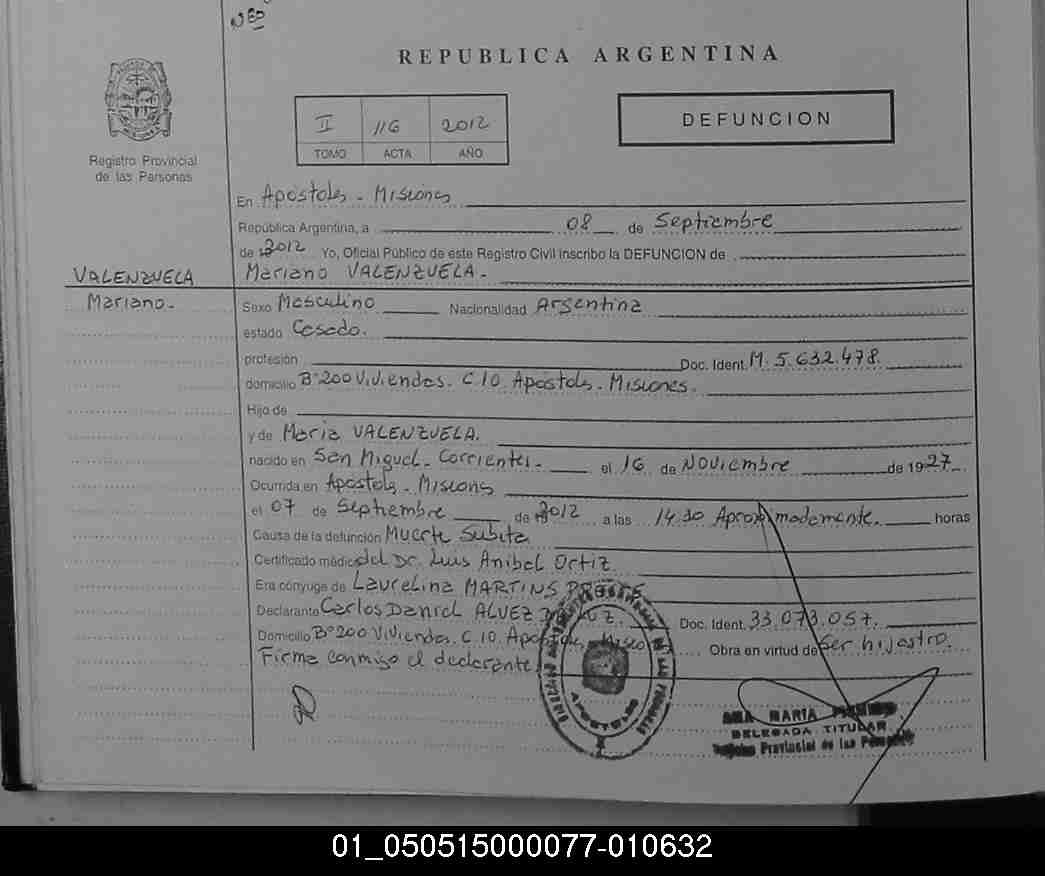 REPUBLICA ARGENTINA
Registro Provincial
de las Personas
II 116 2012
TOMO ACTA AÑO
DEFUNCION
En Apostoles - Misiones
República Argentina, a 08 de Septiembre
de 2012 Yo, Oficial Público de este Registro Civil inscribo la DEFUNCION de
VALENZUELA
Mariano.
Mariano VALENZUELA.
Sexo Masculino Nacionalidad Argentina
estado Casado.
profesión Doc. Ident. M. 5.632.478.
domicilio B° 200 Viviendas. C 10. Apostoles. Misiones.
Hijo de
y de Maria VALENZUELA.
nacido en San Miguel. Corrientes. el 16 de Noviembre de 1927
Ocurrida en Apostoles. Misiones
el 07 de Septiembre de 2012 a las 14.30 Aproximadamente. horas
Causa de la defunción Muerte Subita.
Certificado médico del Dr. Luis Anibal Ortiz
Era cónyuge de Laurelina MARTINS
Declarante Carlos Daniel ALVEZ Doc. Ident. 33.073.057.
Domicilio B° 200 Viviendas. C 10. Apostoles. Obra en virtud de Ser hijastro.
Firma conmigo el declarante
APOSTOLES
ANA MARIA
DELEGADA TITULAR
Provincial de las
01_050515000077-010632